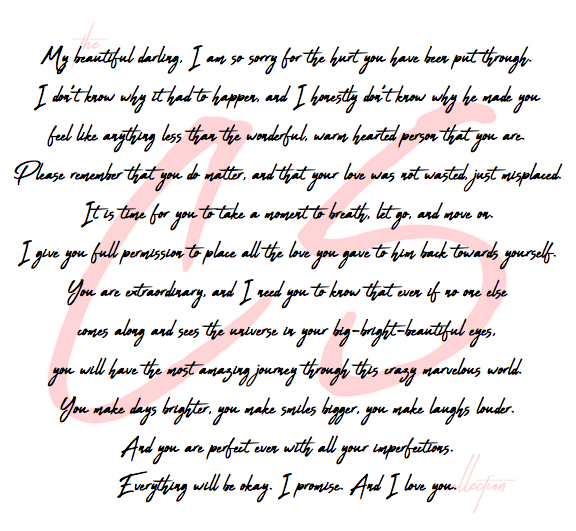 the
My beautiful darling, I am so sorry for the hurt you have been put through.
I don't know why it had to happen, and I honestly don't know why he made you
feel like anything less than the wonderful, warm hearted person that you are.
Please remember that you do matter, and that your love was not wasted, just misplaced.
It is time for you to take a moment to breath, let go, and move on.
I give you full permission to place all the love you gave to him back towards yourself.
You are extraordinary, and I need you to know that even if no one else
comes along and sees the universe in your big-bright-beautiful eyes,
you will have the most amazing journey through this crazy marvelous world.
You make days brighter, you make smiles bigger, you make laughs louder.
And you are perfect even with all your imperfections.
Everything will be okay. I promise. And I love you.
CS